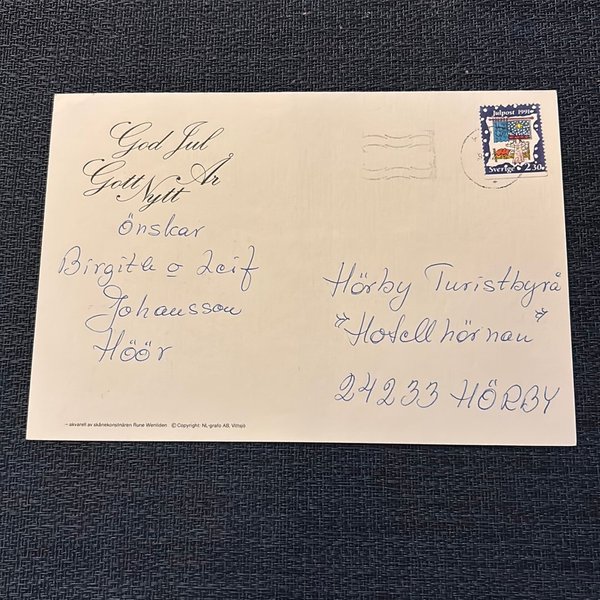 God Jul
Gott Nytt År
önskar
Birgith o Leif
Johansson
Höör
Julpost 1991
Sverige 2.30
Hörby Turistbyrå
"Hotellhörnan"
24233 HÖRBY
– akvarell av skånekonstnären Rune Wenliden © Copyright: NL-grafo AB, Vittsjö